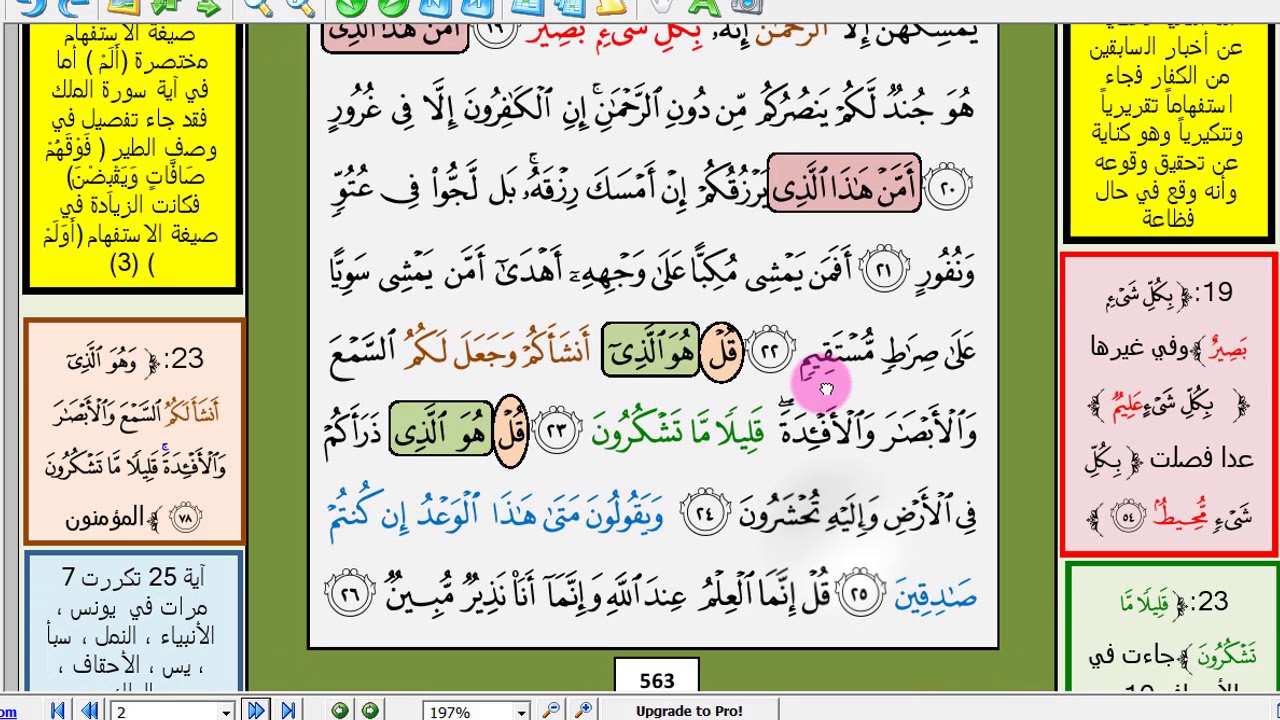 يُمْسِكُهُنَّ إِلَّا ٱلرَّحْمَٰنُ إِنَّهُۥ بِكُلِّ شَىْءٍۭ بَصِيرٌ ١٩ أَمَّنْ هَٰذَا ٱلَّذِى
هُوَ جُندٌ لَّكُمْ يَنصُرُكُم مِّن دُونِ ٱلرَّحْمَٰنِ ۚ إِنِ ٱلْكَٰفِرُونَ إِلَّا فِى غُرُورٍ
٢٠ أَمَّنْ هَٰذَا ٱلَّذِى يَرْزُقُكُمْ إِنْ أَمْسَكَ رِزْقَهُۥ ۚ بَل لَّجُّوا۟ فِى عُتُوٍّ
وَنُفُورٍ ٢١ أَفَمَن يَمْشِى مُكِبًّا عَلَىٰ وَجْهِهِۦٓ أَهْدَىٰٓ أَمَّن يَمْشِى سَوِيًّا
عَلَىٰ صِرَٰطٍ مُّسْتَقِيمٍ ٢٢ قُلْ هُوَ ٱلَّذِىٓ أَنشَأَكُمْ وَجَعَلَ لَكُمُ ٱلسَّمْعَ
وَٱلْأَبْصَٰرَ وَٱلْأَفْـِٔدَةَ ۖ قَلِيلًا مَّا تَشْكُرُونَ ٢٣ قُلْ هُوَ ٱلَّذِى ذَرَأَكُمْ
فِى ٱلْأَرْضِ وَإِلَيْهِ تُحْشَرُونَ ٢٤ وَيَقُولُونَ مَتَىٰ هَٰذَا ٱلْوَعْدُ إِن كُنتُمْ
صَٰدِقِينَ ٢٥ قُلْ إِنَّمَا ٱلْعِلْمُ عِندَ ٱللَّهِ وَإِنَّمَآ أَنَا۠ نَذِيرٌ مُّبِينٌ ٢٦
563
عن أخبار السابقين
من الكفار فجاء
استفهاماً تقريرياً
وتنكيرياً وهو كناية
عن تحقيق وقوعه
وأنه وقع في حال
فظاعة
19: ﴿ بِكُلِّ شَىْءٍ
بَصِيرٌ ﴾ وفي غيرها
﴿ بِكُلِّ شَىْءٍ عَلِيمٌ ﴾
عدا فصلت ﴿ بِكُلِّ
شَىْءٍ مُّحِيطٌۢ ٥٤ ﴾
23: ﴿ قَلِيلًا مَّا
تَشْكُرُونَ ﴾ جاءت في
صيغة الاستفهام
مختصرة (أَلَمْ ) أما
في آية سورة الملك
فقد جاء تفصيل في
وصف الطير ( فَوْقَهُمْ
صَافَّاتٍ وَيَقْبِضْنَ)
فكانت الزيادة في
صيغة الاستفهام (أَوَلَمْ
) (3)
23: ﴿ وَهُوَ ٱلَّذِىٓ
أَنشَأَ لَكُمُ ٱلسَّمْعَ وَٱلْأَبْصَٰرَ
وَٱلْأَفْـِٔدَةَ ۚ قَلِيلًا مَّا تَشْكُرُونَ
٧٨ ﴾ المؤمنون
آية 25 تكررت 7
مرات في يونس ،
الأنبياء ، النمل ، سبأ
، يس ، الأحقاف ،
2
197%
Upgrade to Pro!